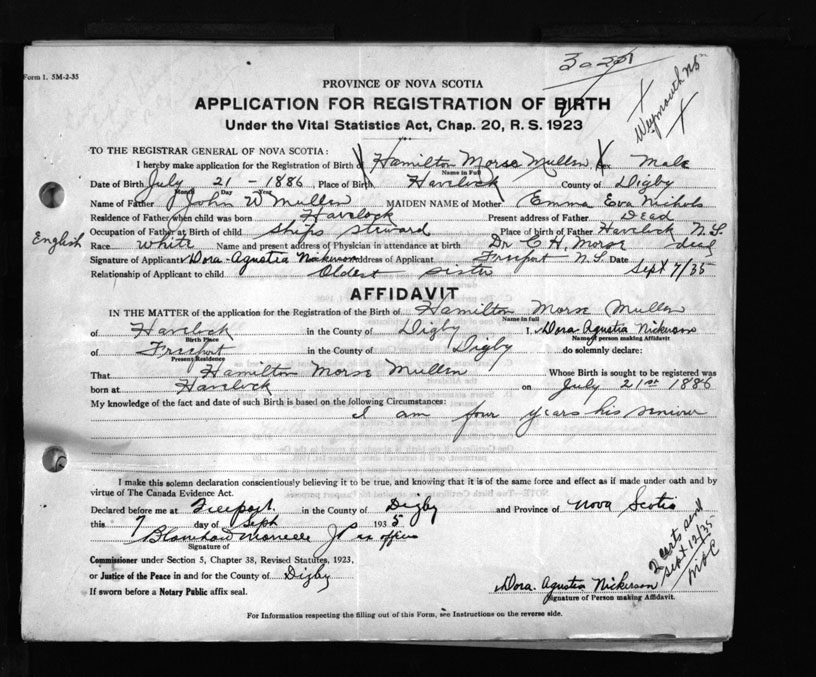 Form 1. 5M-2-35
PROVINCE OF NOVA SCOTIA
APPLICATION FOR REGISTRATION OF BIRTH
Under the Vital Statistics Act, Chap. 20, R. S. 1923
Weymouth NS
TO THE REGISTRAR GENERAL OF NOVA SCOTIA:
I hereby make application for the Registration of Birth of Hamilton Morse Mullen Sex Male
Name in Full
Date of Birth July 21 - 1886 Place of Birth Havelock County of Digby
Month Day Year
Name of Father John W Mullen MAIDEN NAME of Mother Emma Eva Nichols
Residence of Father when child was born Havelock Present address of Father Dead
Occupation of Father at Birth of child Ships Steward Place of birth of Father Havelock N.S.
English
Race white Name and present address of Physician in attendance at birth Dr C H. Morse dead
Signature of Applicant Dora Agustia Nickerson Address of Applicant Freeport N.S. Date Sept 7/35
Relationship of Applicant to child Oldest sister
AFFIDAVIT
IN THE MATTER of the application for the Registration of the Birth of Hamilton Morse Mullen
Name in full
of Havelock in the County of Digby I, Dora Agustia Nickerson
Birth Place Name of person making Affidavit
of Freeport in the County of Digby do solemnly declare:
Present Residence
That Hamilton Morse Mullen Whose Birth is sought to be registered was
born at Havelock on July 21st 1886
My knowledge of the fact and date of such Birth is based on the following Circumstances:
I am four years his senior
I make this solemn declaration conscientiously believing it to be true, and knowing that it is of the same force and effect as if made under oath and by
virtue of The Canada Evidence Act.
Declared before me at Freeport in the County of Digby and Province of Nova Scotia
this 7 day of Sept 1935
JP ex officio
Signature of
Commissioner under Section 5, Chapter 38, Revised Statutes, 1923,
or Justice of the Peace in and for the County of Digby
If sworn before a Notary Public affix seal.
2 certs sent
Sept 12/35
Dora Agustia Nickerson
Signature of Person making Affidavit.
For Information respecting the filling out of this Form, see Instructions on the reverse side.